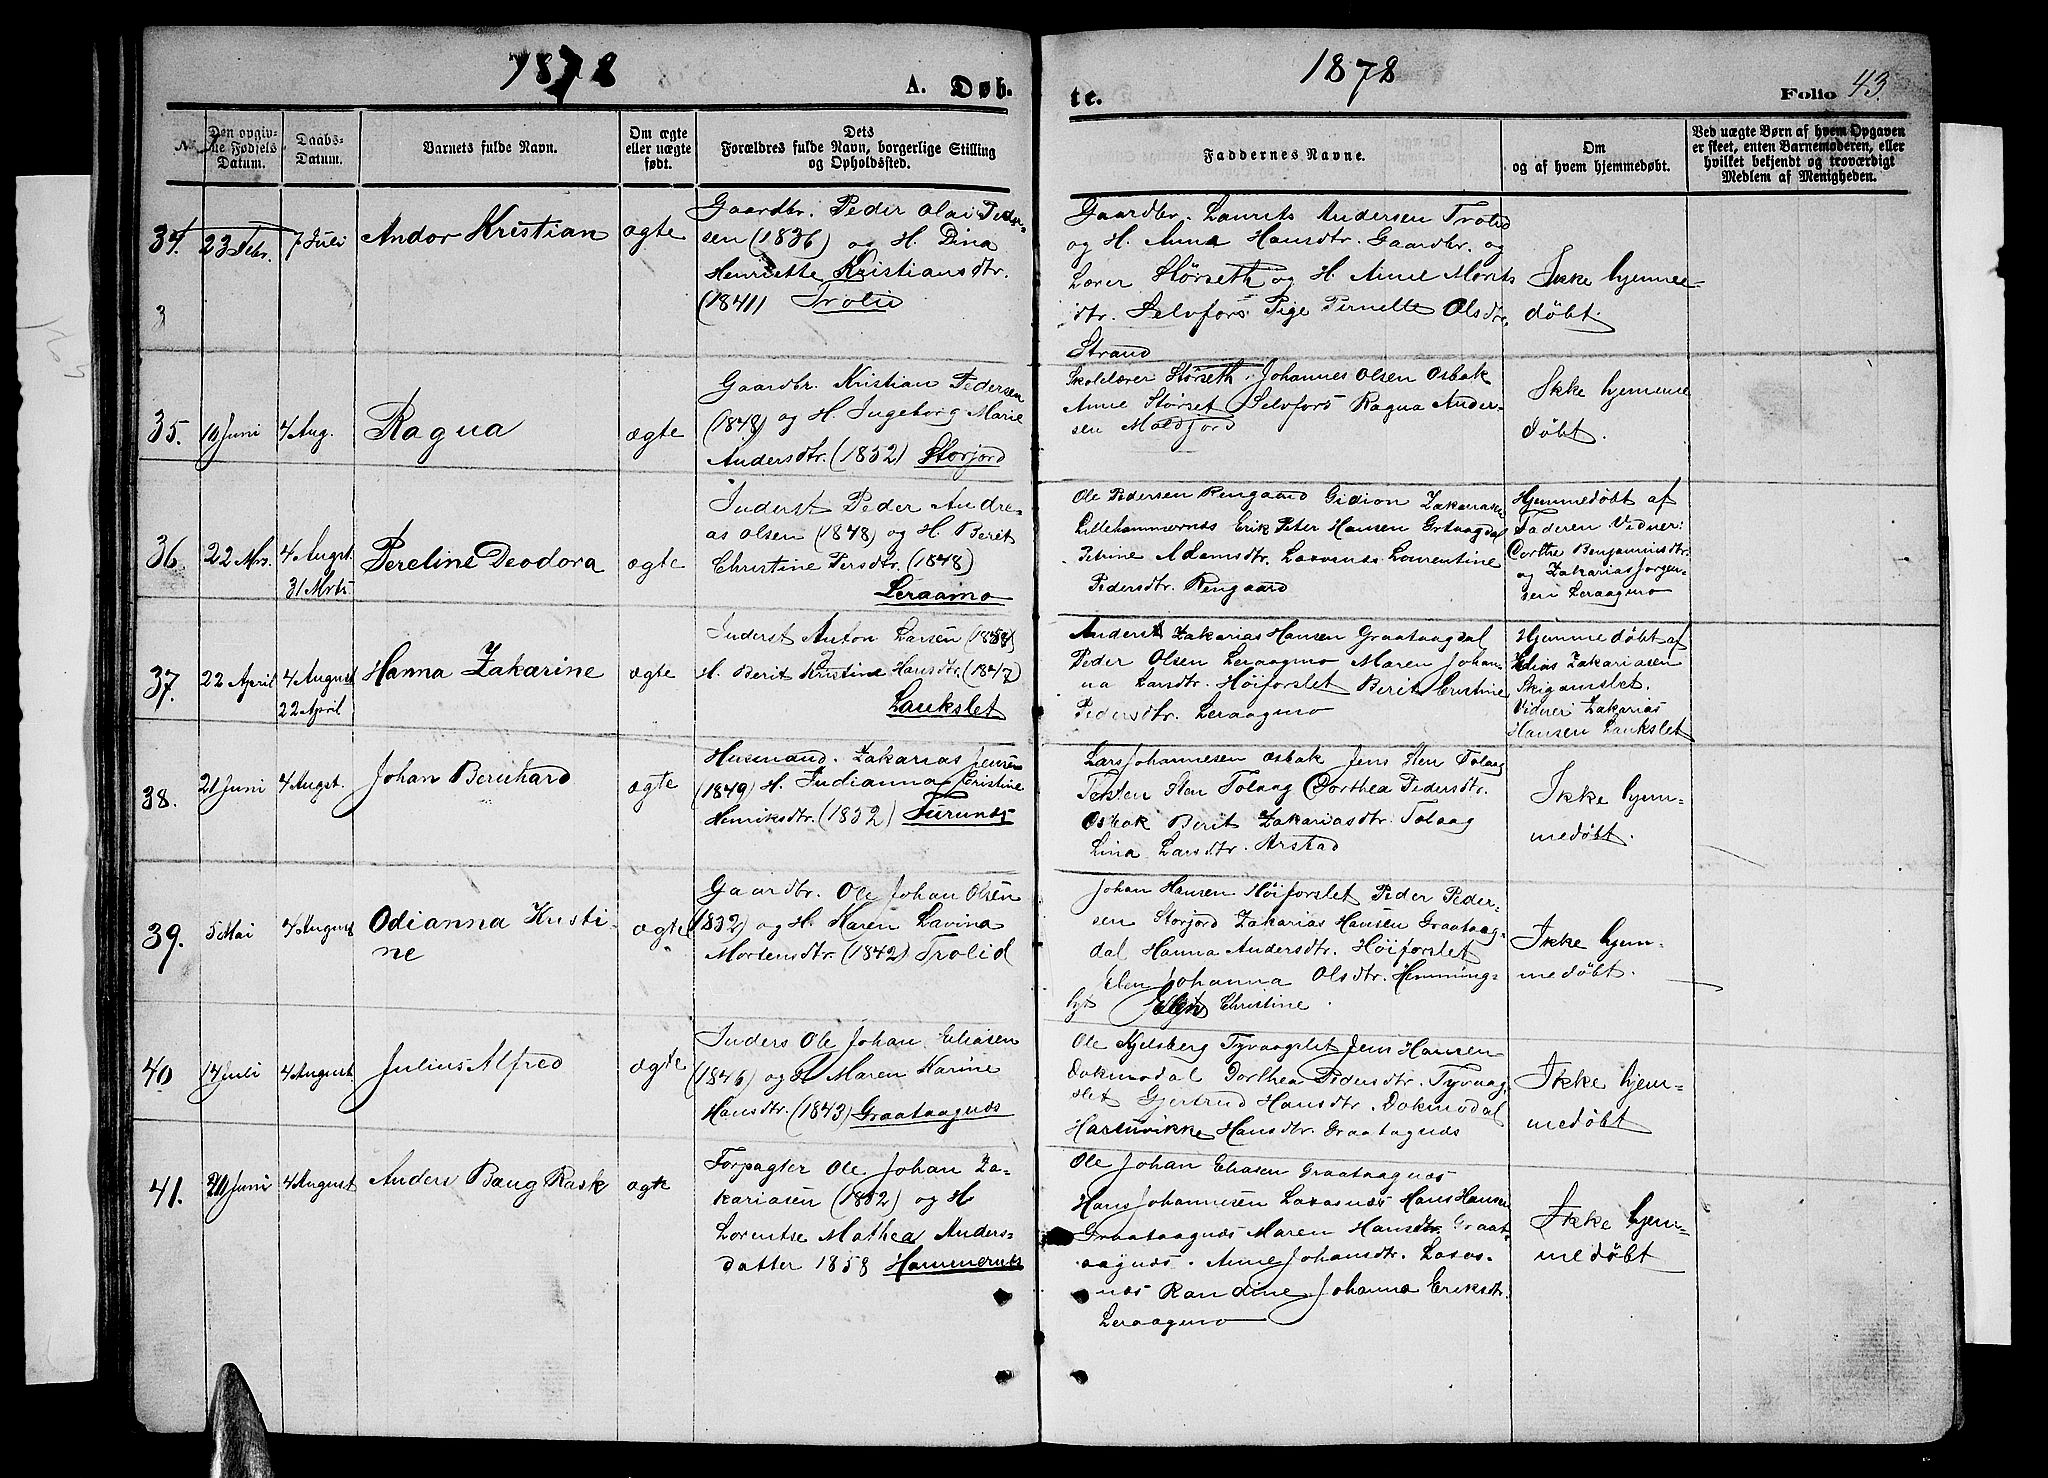 1878
A. Døb-
1878
te.
Folio 43
No.
Den opgiv-
ne Fødsels
Datum.
Daabs-
Datum.
Barnets fulde Navn.
Om ægte
eller uægte
født.
Dets
Forældres fulde Navn, borgerlige Stilling
og Opholdssted.
Faddernes Navne.
Om
og af hvem hjemmedøbt.
Ved uægte Børn af hvem Opgaven
er skeet, enten Barnemoderen, eller
hvilket bekjendt og troværdigt
Medlem af Menigheden.
34.
23 Febr.
7 Juli
Andor Kristian
ægte
Gaardbr. Peder Olai Peder-
sen (1836) og H. Dina
Henriette Kristiansdtr.
(1841) Trolid
Gaardbr. Laurits Andersen Trolid
og H. Anna Hansdtr. Gaardbr. og
Lærer Størseth og H. Anne Morits
dtr. Selvfors Pige Pernelle Olsdtr.
Strand
Ikke hjemme-
døbt.
3
35.
10 Juni
4 Aug.
Ragna
ægte
Gaardbr. Kristian Pedersen
(1848) og H. Ingeborg Marie
Andersdtr. (1852) Storjord
Skolelærer Størseth. Johannes Olsen Osbak
Anne Størset Selvfors Ragna Ander-
sen Moldjord
Ikke hjemme
døbt.
36.
22 Mrs.
4 Augst
31 Mrts
Pereline Deodora
ægte
Inderst Peder Andre-
as Olsen (1848) og H. Berit
Christine Persdtr. (1848)
Leraamo
Ole Pedersen Rengaard Gidion Zakarias
Lillehammernes Erik Peter Hansen Grtaagdal
Petrine Adamsdtr. Laurentine
Pedersdtr. Rengaard
Hjemmedøbt af
Faderen Vidner:
Dorthe Benjaminsdtr.
og Zakarias Jørgen-
sen Leraagmo
37.
22 April
4 August
22 April
Hanna Zakarine
ægte
Inderst Anton Larsen
H. Berit Kristine Hansdtr. (1847)
Laukslet
Anderst Zakarias Hansen Graataagdal
Peder Olsen Leraagmo Maren Johan-
na Larsdtr. Høiforslet Berit Cristine
Pedersdtr. Leraagmo
Hjemme døbt af
Elias Zakariasen
Skigamslet.
Vidner Zakarias
Hansen Laukslet
38.
21 Juni
4 Augst.
Johan Bernhard
ægte
Husmand. Zakarias Jensen
(1849) H. Indianna Cristine
Henriksdtr. (1852) Furunes
Lars Johannesen Osbak Jens Sten Tolaag
Torsten Sten Tolaag Dorthea Pedersdtr.
Osbak Berit Zakariasdtr. Tolaag
Lina Larsdtr. Arstad
Ikke hjem-
medøbt.
39.
5 Mai
4 August
Odianna Kristi-
ne
ægte
Gaardbr. Ole Johan Olsen
(1832) og H. Karen Lavina
Mortensdtr. (1842) Trolid
Johan Hansen Høiforslet Peder Peder-
sen Storjord Zakarias Hansen Graataag-
dal Hanna Andersdtr. Høiforslet
Elen Johanna Olsdtr. Hemming-
hyt Christine
Ikke hjem-
medøbt.
40
14 Juli
4 August
Julius Alfred
ægte
Inders Ole Johan Eliasen
(1846) og H Maren Karine
Hansdtr. (1843) Graataagnæs
Ole Kjelsberg Tyvaagslet Jens Hansen
Dokmodal Dorthea Pedersdtr. Tyvaag
slet Gjertrud Hansdtr. Dokmodal
Hartvikke Hansdtr. Graatagnæs
Ikke hjem-
medøbt
41.
Juni
4 August
Anders Baug Rask
ægte
Forpagter Ole Johan Za-
kariasen (1852) og H
Lorentse Mathea Anders-
datter 1858 Hammernes
Ole Johan Eliasen Graataagnæs
Hans Johannesen Laxasnæs Hans Hansen
Graataagnæs Maren Hansdtr. Graat-
aagnæs. Anne Johansdtr. Laxas-
næs Randine Johanna Eriksdtr.
Leraagmo
Ikke hjem-
medøbt